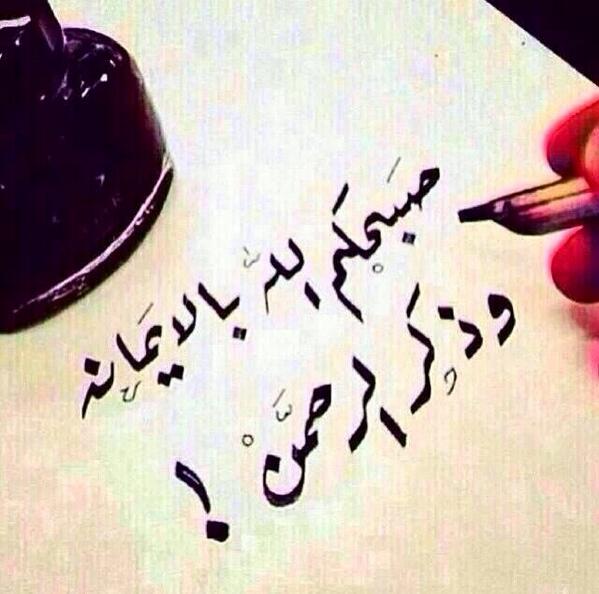 صبحكم الله بالإيمان
وذكر الرحمن !